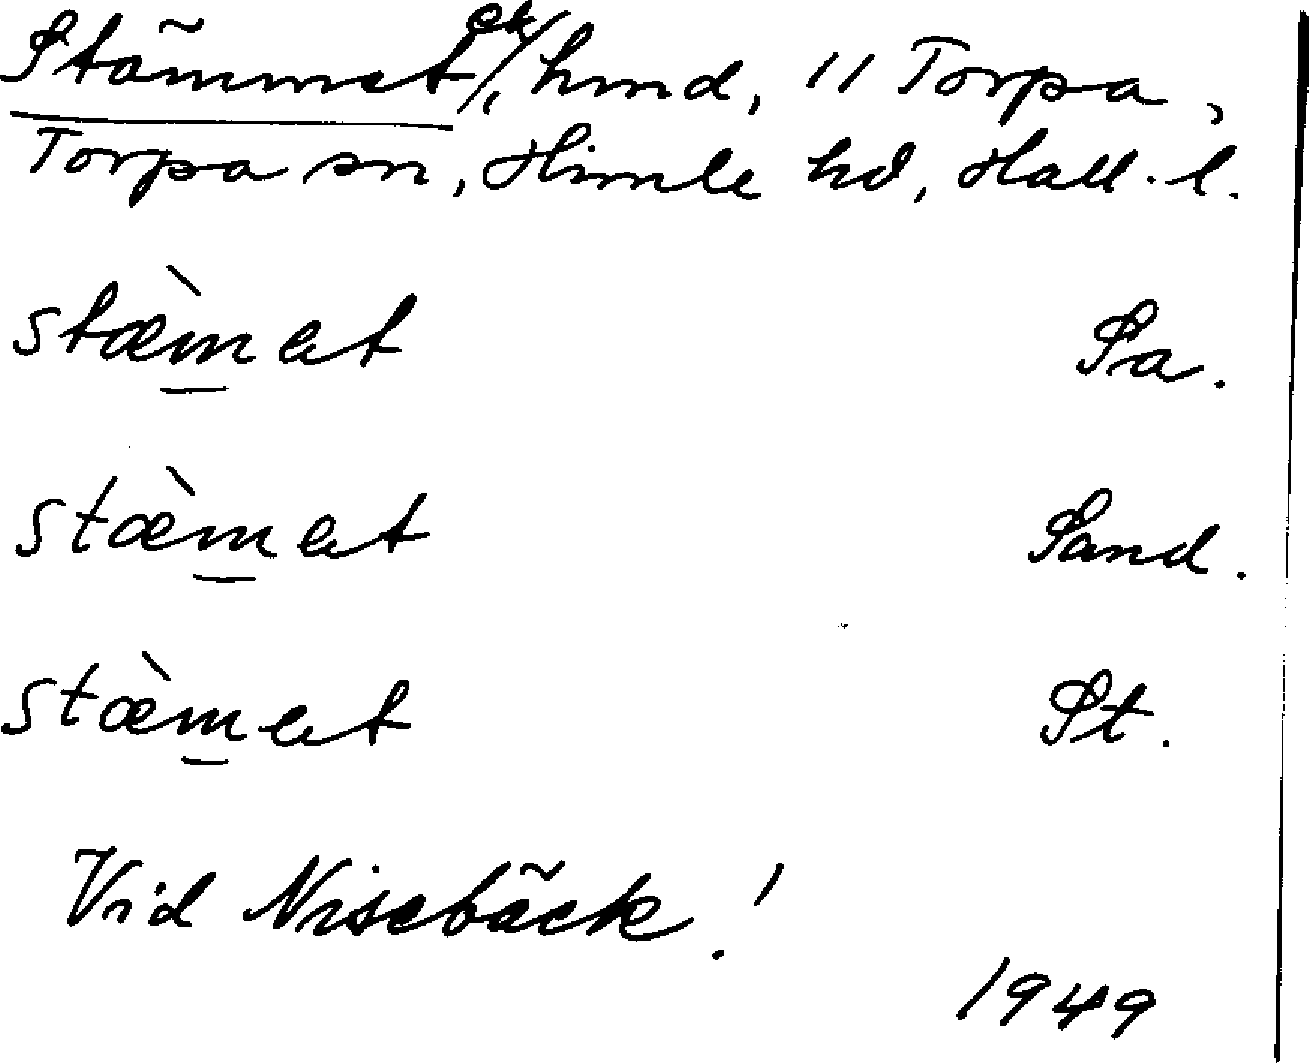 Stämmet ek/, hmd, 11 Torpa,
Torpa sn, Himle hd, Hall. l.
stæ̀mət Sa.
stæ̀mət Sand.
stæ̀mət St.
Vid Nisebäck!
1949